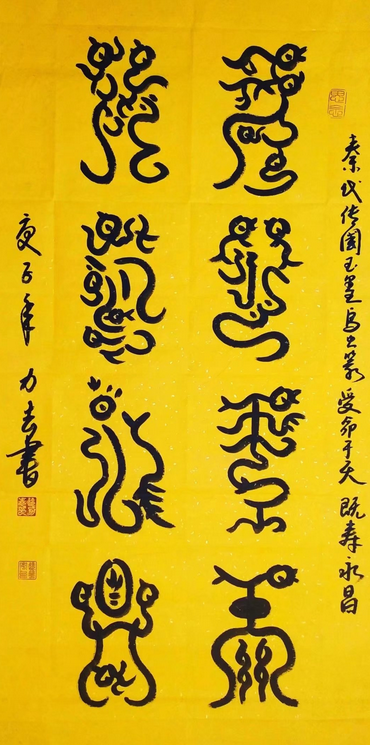 秦代传國玉璽鸟虫篆受命于天 既寿永昌
受命于天
既壽永昌
庚子年 力書